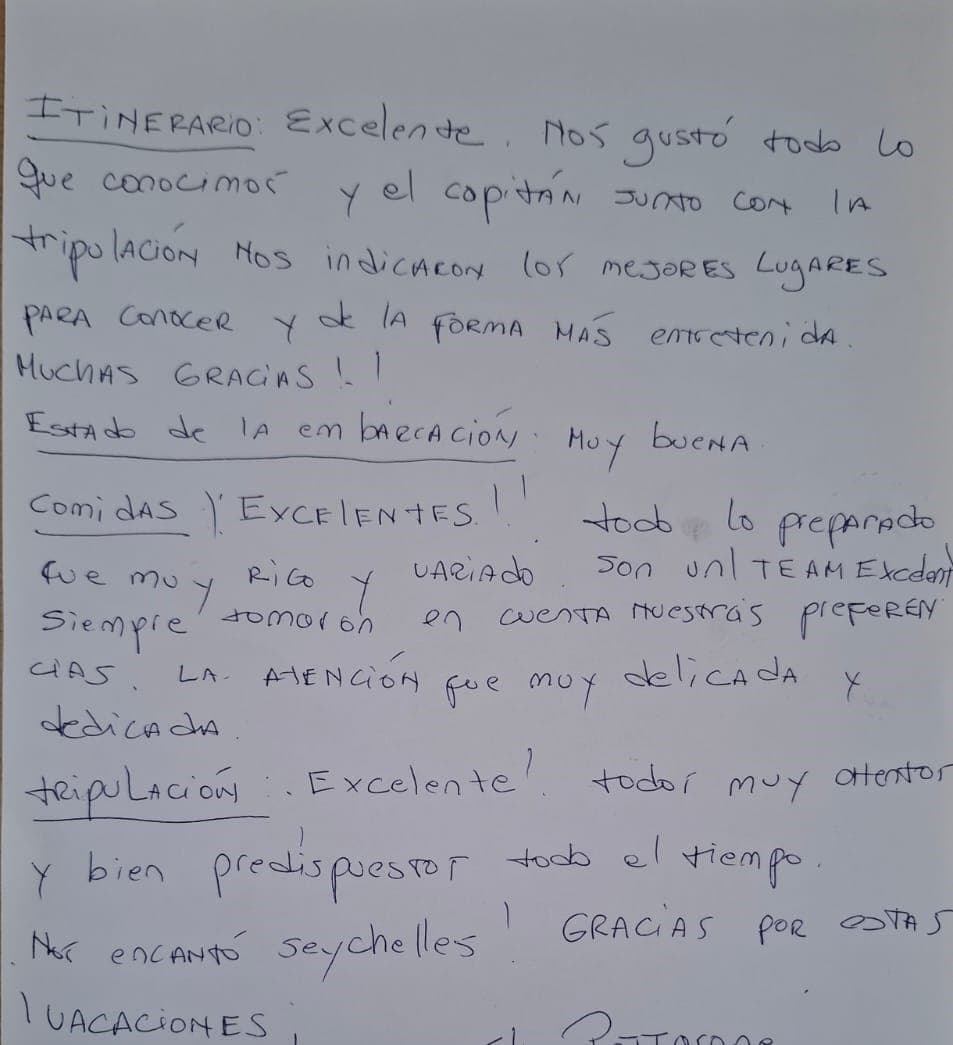 ITINERARIO: Excelente. Nos gustó todo lo
que conocimos y el capitán junto con la
tripulación nos indicaron los mejores lugares
para conocer y de la forma más entretenida.
Muchas gracias!!
Estado de la embarcación: Muy buena.
Comidas: Excelentes!! todo lo preparado
fue muy rico y variado. Son un TEAM Excelent
siempre tomaron en cuenta nuestras preferen
cias. La atención fue muy delicada y
dedicada.
tripulación: Excelente! todos muy atentos
y bien predispuestos todo el tiempo.
Nos encantó Seychelles! Gracias por estas
vacaciones